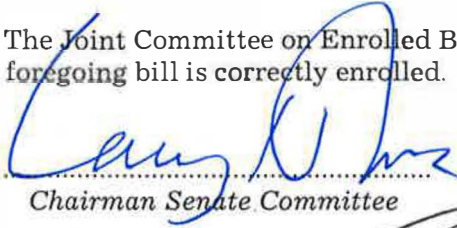 The Joint Committee on Enrolled B
foregoing bill is correctly enrolled.
Chairman Senate Committee